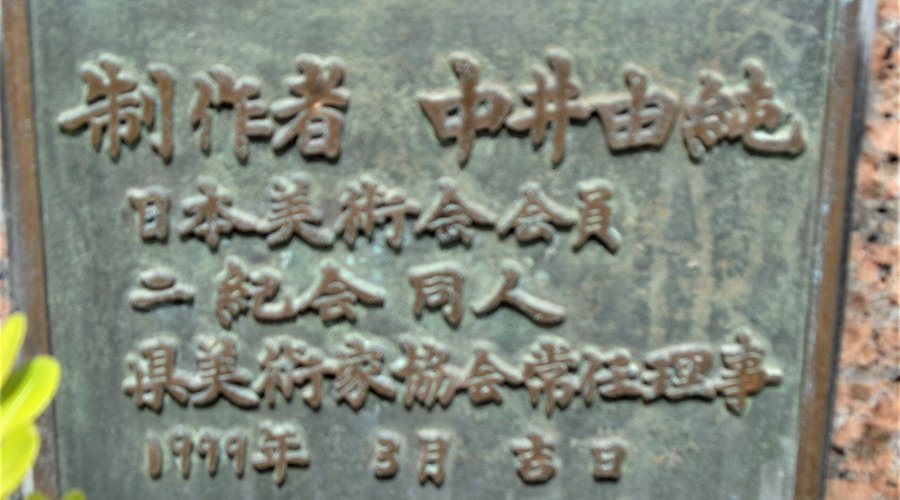 制作者 中井由純
日本美術会会員
二紀会 同人
県美術家協会常任理事
1999年 3月 吉日